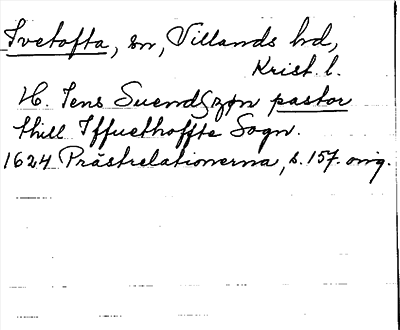 Ivetofta, sn, Villands hd,
Krist. l.
H. Jens Suendszøn pastor
thill Iffuethoffte Sogn.
1624 Prästrelationerna, s. 157. orig.